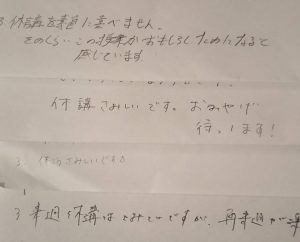 3 休講を素直に喜べません。
そのくらい この授業がおもしろくためになると
感じています
休講さみしいです。おみやげ
待ってます!
3. 休講さみしいです
3 来週休講はさみしいですが、再来週が楽